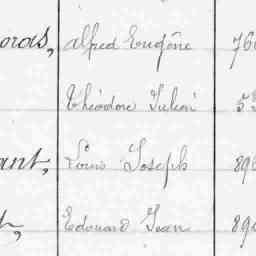 oras, Alfred Eugène 76
Théodore Julien 5
ant, Louis Joseph 89
t, Edouard Jean 89